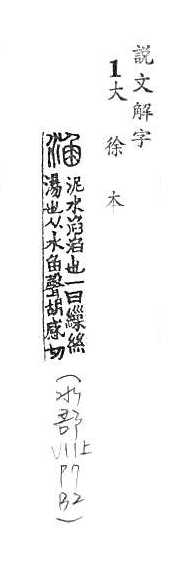 説文解字
1大徐本
淊
泥水淊淊也一曰繅絲
湯也从水臽聲胡感切
（水部VIII上P7B2）